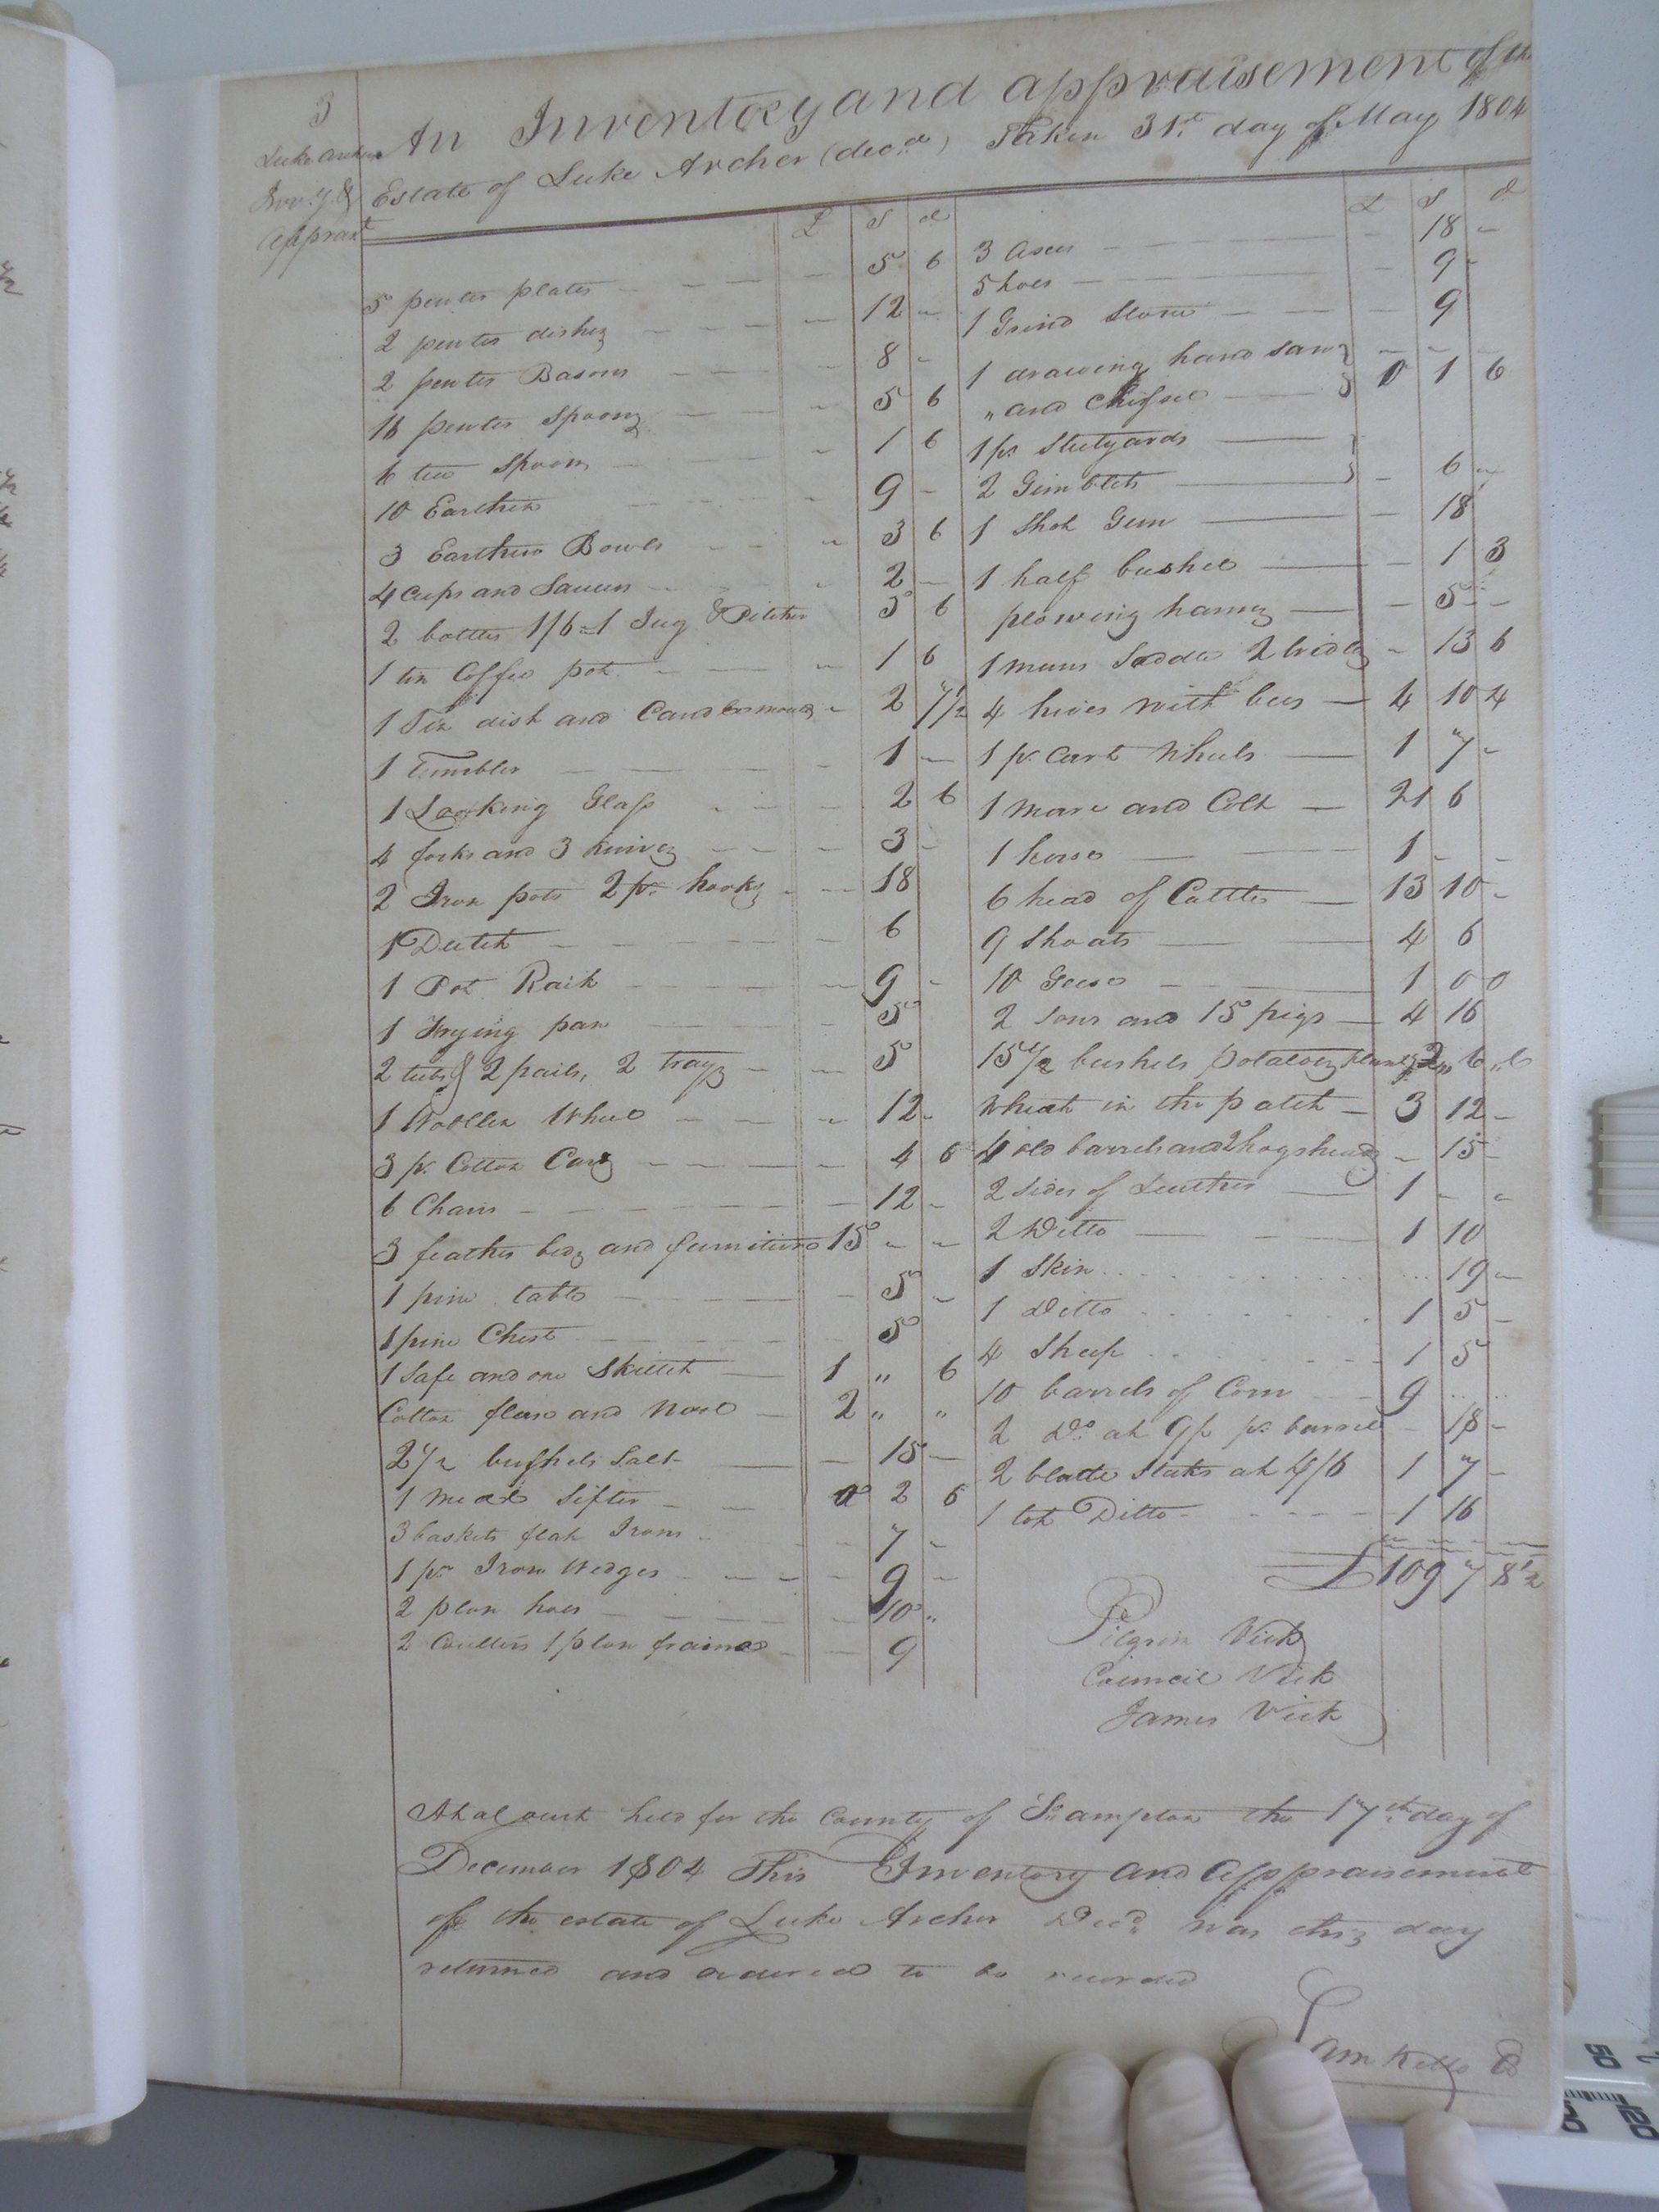 3
Luke Archer
Invy. &
Appraist
An Inventory and appraisement of the
Estate of Luke Archer (decd.) Taken 31st. day of May 1804
£ S d
5 pewter plates — — — 5 6
2 pewter dishes — — — 12 —
2 pewter Basons — — — 8 —
16 pewter Spoons — — — 5 6
6 tea Spoons — — 1 6
10 Earthen — — 9 —
3 Earthen Bowls — — 3 6
4 Cups and Saucers — — 2 —
2 bottles 1/6 = 1 Jug & Pitcher 5 6
1 tin Coffee pot — — 1 6
1 Tin dish and Candlemoulds — 2 7 1/2
1 Tumbler — — — 1 —
1 Looking Glass — — 2 6
4 forks and 3 knives — — — 3 —
2 Iron pots 2 pr. hooks — — 18
1 Dutch — — — 6
1 Pot Rack — — — 9 —
1 Frying pan — — — 5
2 tubs & 2 pails, 2 trays — — 5
1 Woollen Wheel — — — 12 —
3 pr. Cotton Cards — — — 4 6
6 Chairs — — — 12 —
3 feather beds and furniture 15 — —
1 pine table — — — 5 —
1 pine Chest — — — 5
1 Safe and one Skillet — 1 " 6
Cotton flax and Wool — 2 " "
2 1/2 bushels Salt — — 15 —
1 meal Sifter — — 0 2 6
3 baskets flat Irons — — 7 —
1 pr. Iron Wedges — — — 9 —
2 plow hoes — — — 10 "
2 Coulters 1 plow frame — — 9
£ S d
3 Axes — — — 18 —
5 hoes — — — 9 —
1 Grind Stone — — — 9
1 drawing hand saw — — —
" and Chissel — 0 1 6
1 pr Steelyards —
2 Gimblets — — 6 —
1 Shot Gun — — 18
1 half bushel — — 1 3
plowing harness — — 5 — —
1 mans Saddle 2 bridles — 13 6
4 hives with bees — 4 10 4
1 pr. Cart Wheels — 1 7 —
1 mare and Colt — 21 6
1 horse — — 1 — —
6 head of Cattle — 13 10 —
9 Shoats — 4 6
10 Geese — — 1 0 0
2 Sows and 15 pigs — 4 16
15 1/2 bushels potatoes 2 " 6 " 6
Wheat in the patch — 3 12 —
4 old barrels and 2 hogsheads — 15 —
2 Sides of Leather — 1 — —
2 Ditto — — — 1 10
1 Skin . . . . . . 19 —
1 Ditto . . . . . 1 5 —
4 Sheep . . . . — 1 5
10 barrels of Corn — — 9 .. ..
2 Do. at 9/ pr barrel — 18 —
2 at 4/6 1 7 —
1 lot Ditto — — — 1 16
£109 7 8 1/2
Pilgrim Vick
Council Vick
James Vick
At a Court held for the County of So.ampton the 17th. day of
December 1804 This Inventory and Appraisement
of the estate of Luke Archer Decd. was this day
returned and ordered to be recorded
Sam Kello